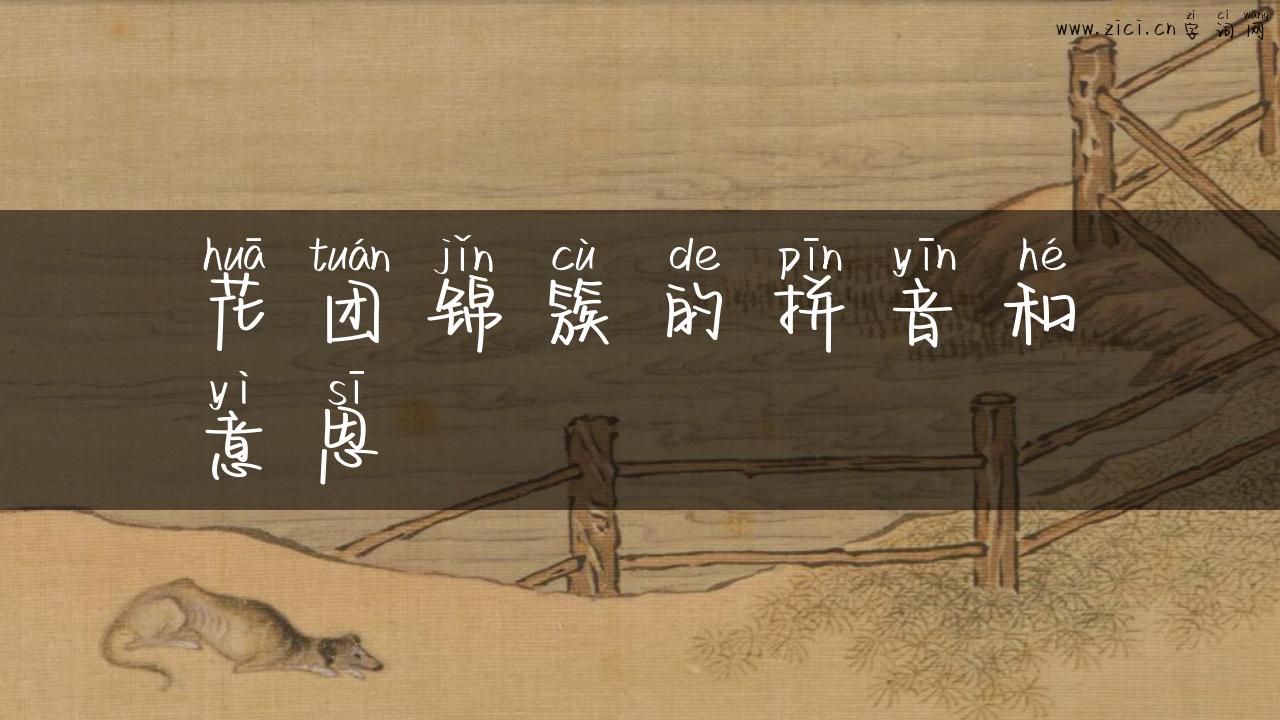 www.zici.cn zì cí wǎng
字词网
huā tuán jǐn cù de pīn yīn hé
花团锦簇的拼音和
yì sī
意思